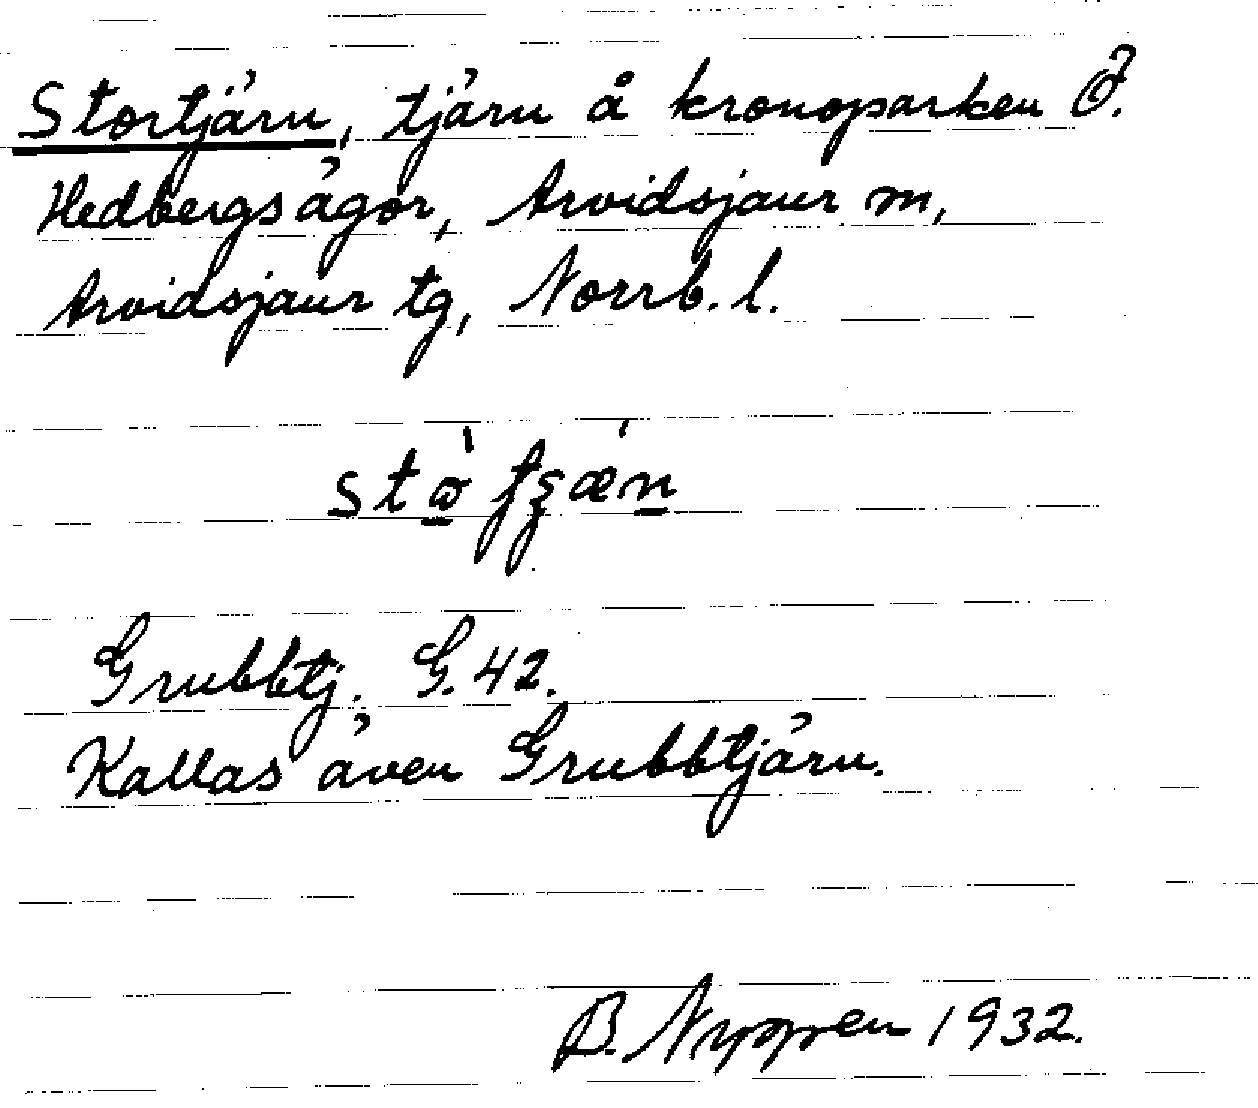 Stortjärn, tjärn å kronoparken Ö.
Hedbergsägor, Arvidsjaur m,
Arvidsjaur tg, Norrb. l.
Grubbtj. G. 42.
Kallas även Grubbtjärn.
B. Nyppen 1932.